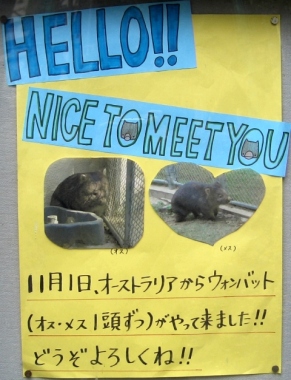 HELLO!!
NICE TO MEET YOU
(オス)
(メス)
11月1日、オーストラリアからウォンバット
(オス・メス1頭ずつ)がやって来ました!!
どうぞよろしくね!!